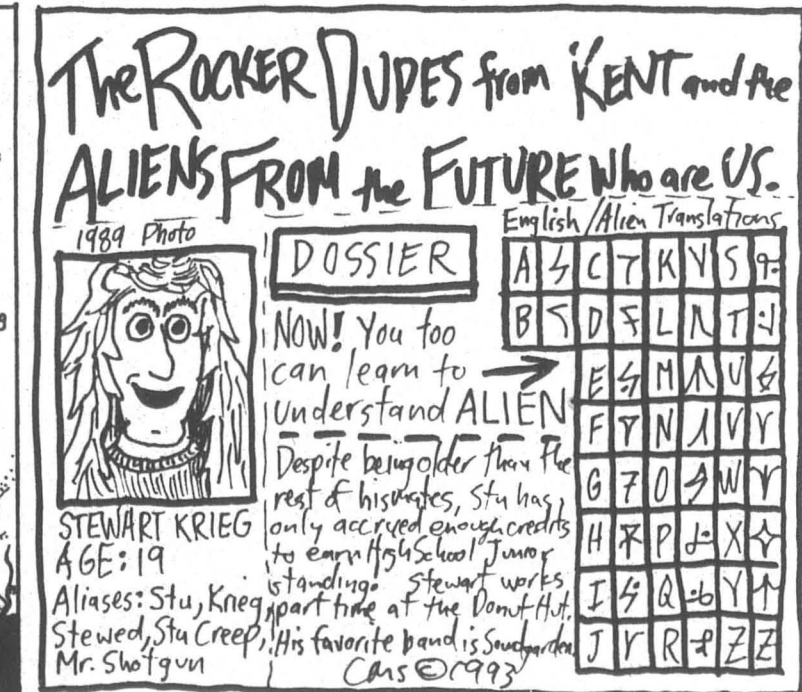 The ROCKER DUDES from KENT and the
ALIENS FROM the FUTURE Who are US.
1989 Photo
STEWART KRIEG
AGE: 19
Aliases: Stu, Krieg,
Stewed, Stu Creep,
Mr. Shotgun
DOSSIER
NOW! You too
can learn to
understand ALIEN
Despite being older than the
rest of his mates, Stu has
only accryed enough credits
to earn High School Junior
standing. Stewart works
part time at the Donut Hut.
His favorite band is Soundgarden
©1993
English/Alien Translations
A C K S
B D L T
E M U
F N V
G O W
H P X
I Q Y
J R Z